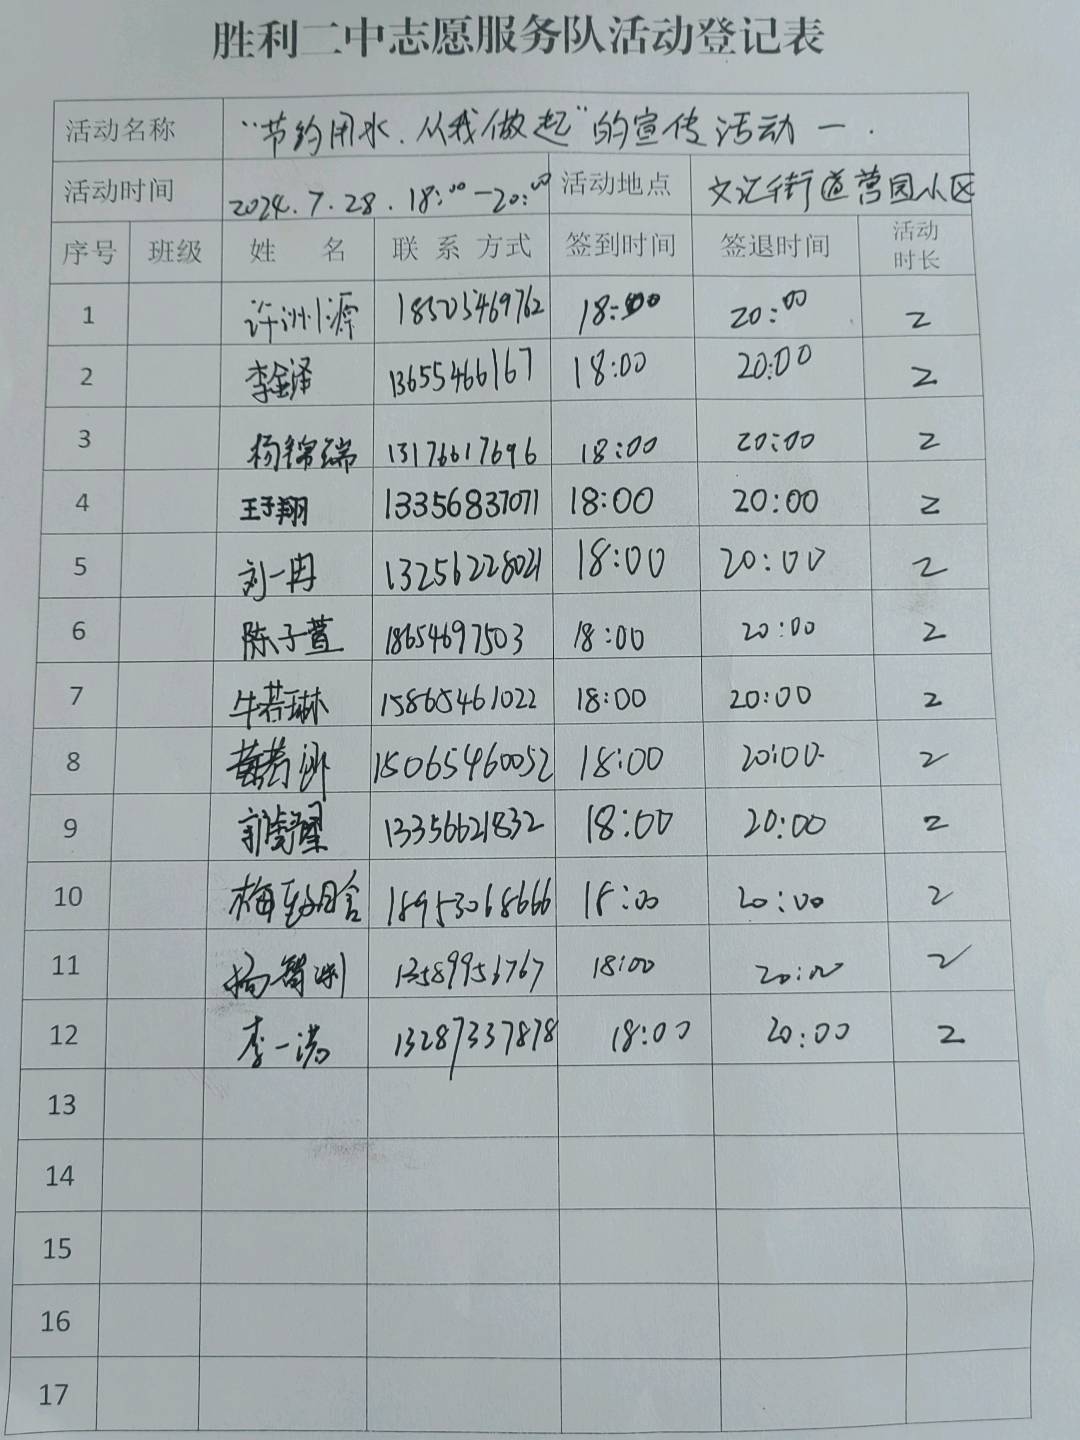 胜利二中志愿服务队活动登记表
活动名称 "节约用水.从我做起"的宣传活动一.
活动时间 2024.7.28.18:00—20:00 活动地点 文汇街道营园小区
序号 班级 姓 名 联 系 方式 签到时间 签退时间 活动时长
1 许洲源 18505469762 18:00 20:00 2
2 李金泽 13655466167 18:00 20:00 2
3 杨锦瑞 13176617696 18:00 20:00 2
4 王子翔 13356837071 18:00 20:00 2
5 刘一冉 13256228021 18:00 20:00 2
6 陈子萱 18654697503 18:00 20:00 2
7 牛若琳 15865461022 18:00 20:00 2
8 15065460052 18:00 20:00 2
9 13356621832 18:00 20:00 2
10 梅 18953068666 18:00 20:00 2
11 杨智渊 13589956767 18:00 20:00 2
12 李一诺 13287337878 18:00 20:00 2
13
14
15
16
17